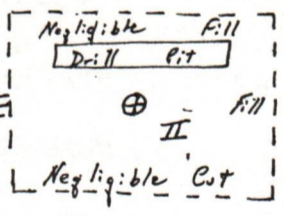 Negligible Fill
Drill Pit
Fill
II
Negligible Cut